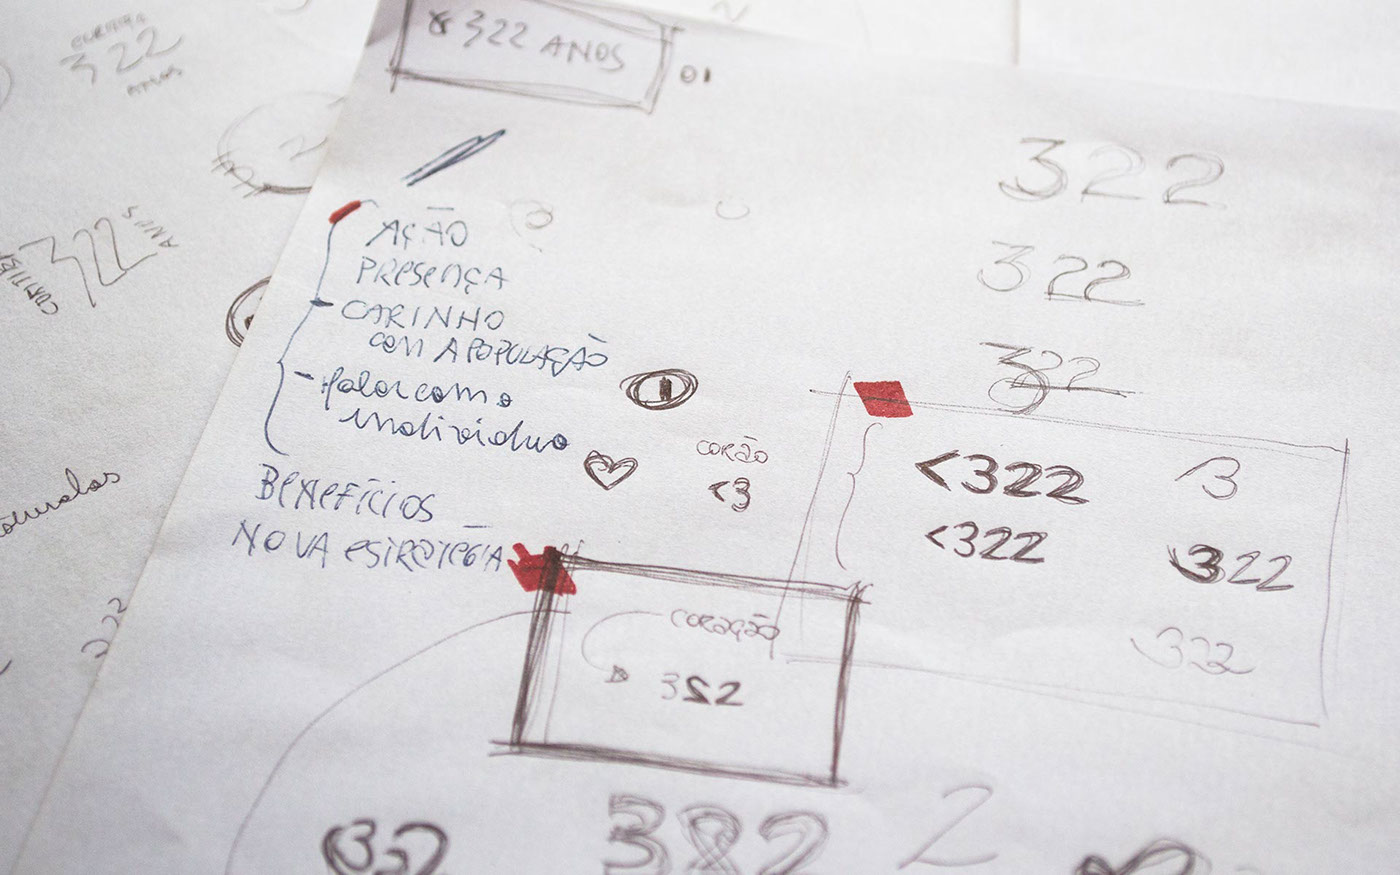 322 ANOS
01
CURITIBA
322
ANOS
322
ANOS
AÇÃO
PRESENÇA
CARINHO
COM A POPULAÇÃO
falar como
indivíduo
BENEFÍCIOS
NOVA ESTRATÉGIA
CORÃO
<3
322
322
322
<322
3
<322
322
322
CORAÇÃO
322
322
32
322
2